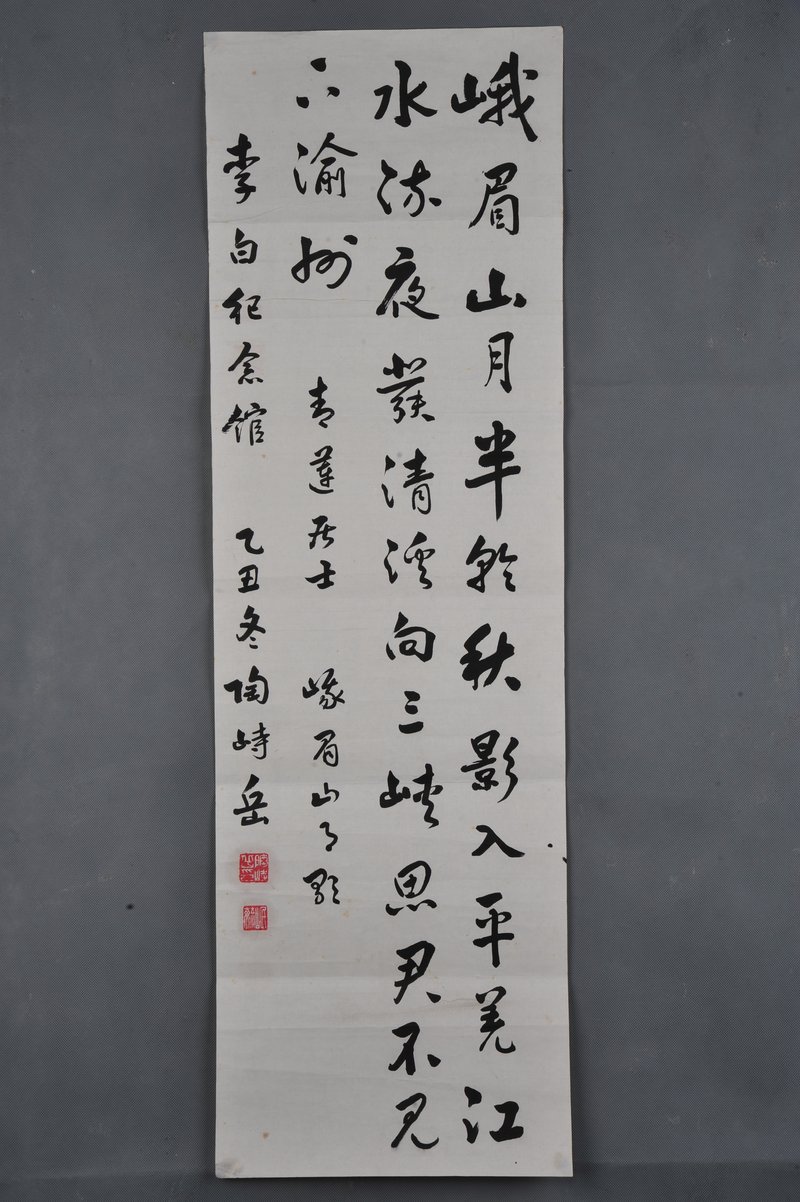 峨眉山月半輪秋影入平羌江
水流夜發清溪向三峽思君不見
下渝州 青蓮居士 峨眉山月歌
李白紀念館 乙丑冬陶峙岳